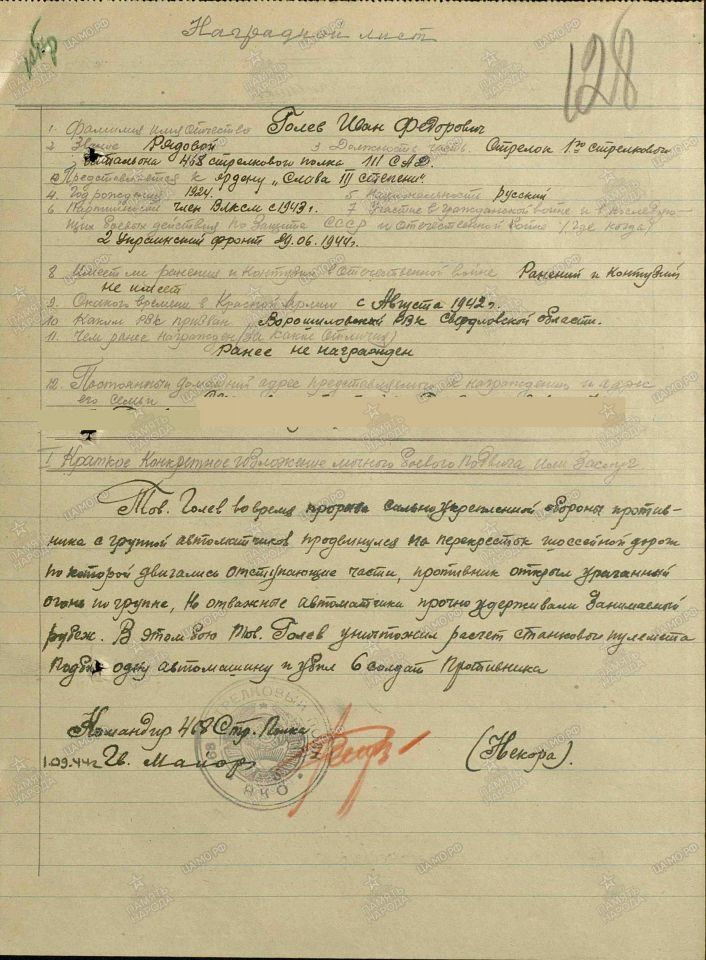 128
Наградной лист
1. Фамилия имя Отчество Голев Иван Федорович
2 Звание Рядовой 3. Должность часть. Стрелок 1го стрелкового
батальона 468 стрелкового полка 111 САД.
Представляется к ордену „Слава III степени".
4. Год рождения 1924. 5 Национальность русский
6 Партийность член ВЛКСМ с 1943 г. 7 Участие в гражданской войне и в последую-
щих боевых действия по защите СССР и отечественной войне (где когда)
2 Украинский фронт 29.06.1944г.
8 Имеет ли ранения и контузии в отечественной войне Ранений и контузий
не имеет
9. С какого времени в Красной Армии с Августа 1942 г.
10 Каким РВК призван Ворошиловский РВК Свердловской области.
11. Чем ранее награжден (за какие отличия)
Ранее не награжден
12. Постоянный домашний адрес представляемого к награждению и адрес
его семьи
I Краткое конкретное изложение личного боевого подвига или заслуг
Тов. Голев во время прорыва сильно укрепленной обороны против-
ника с группой автоматчиков продвинулся на перекресток шоссейной дороги
по которой двигались отступающие части, противник открыл ураганный
огонь по группе, но отважные автоматчики прочно удерживали занимаемый
рубеж. В этом бою тов. Голев уничтожил расчет станкового пулемета
подбил одну автомашину и убил 6 солдат противника
Командир 468 Стр. Полка
1.09.44г Гв. Майор (Некора).
468 СТРЕЛКОВЫЙ ПОЛК
НКО
ПАМЯТЬ НАРОДА
ЦАМО.РФ